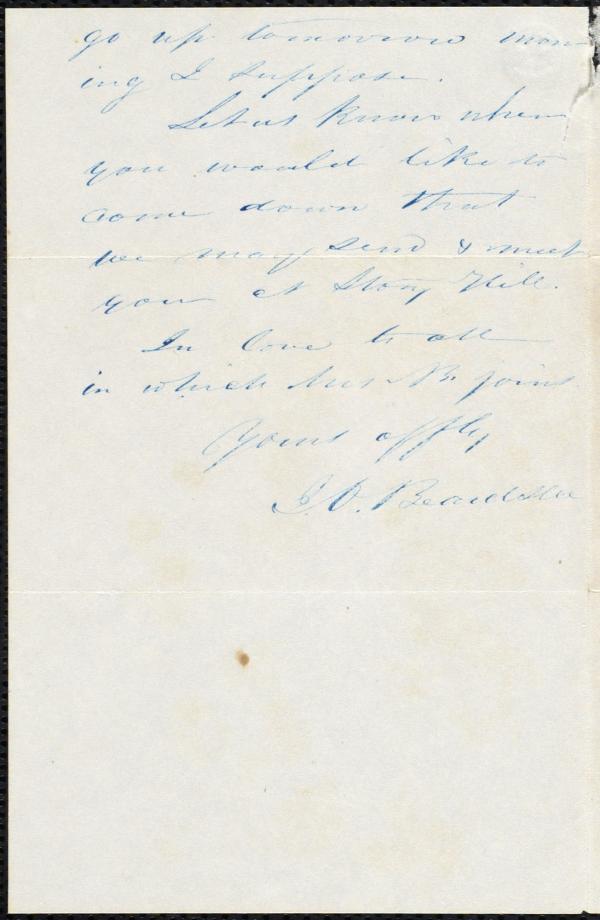 go up tomorrow morn
ing I suppose.
Let us know when
you would like to
come down that
we may send & meet
you at Stony Hill.
In love to all
in which Mrs B. joins
Yours affly,
J. O. Beardslee